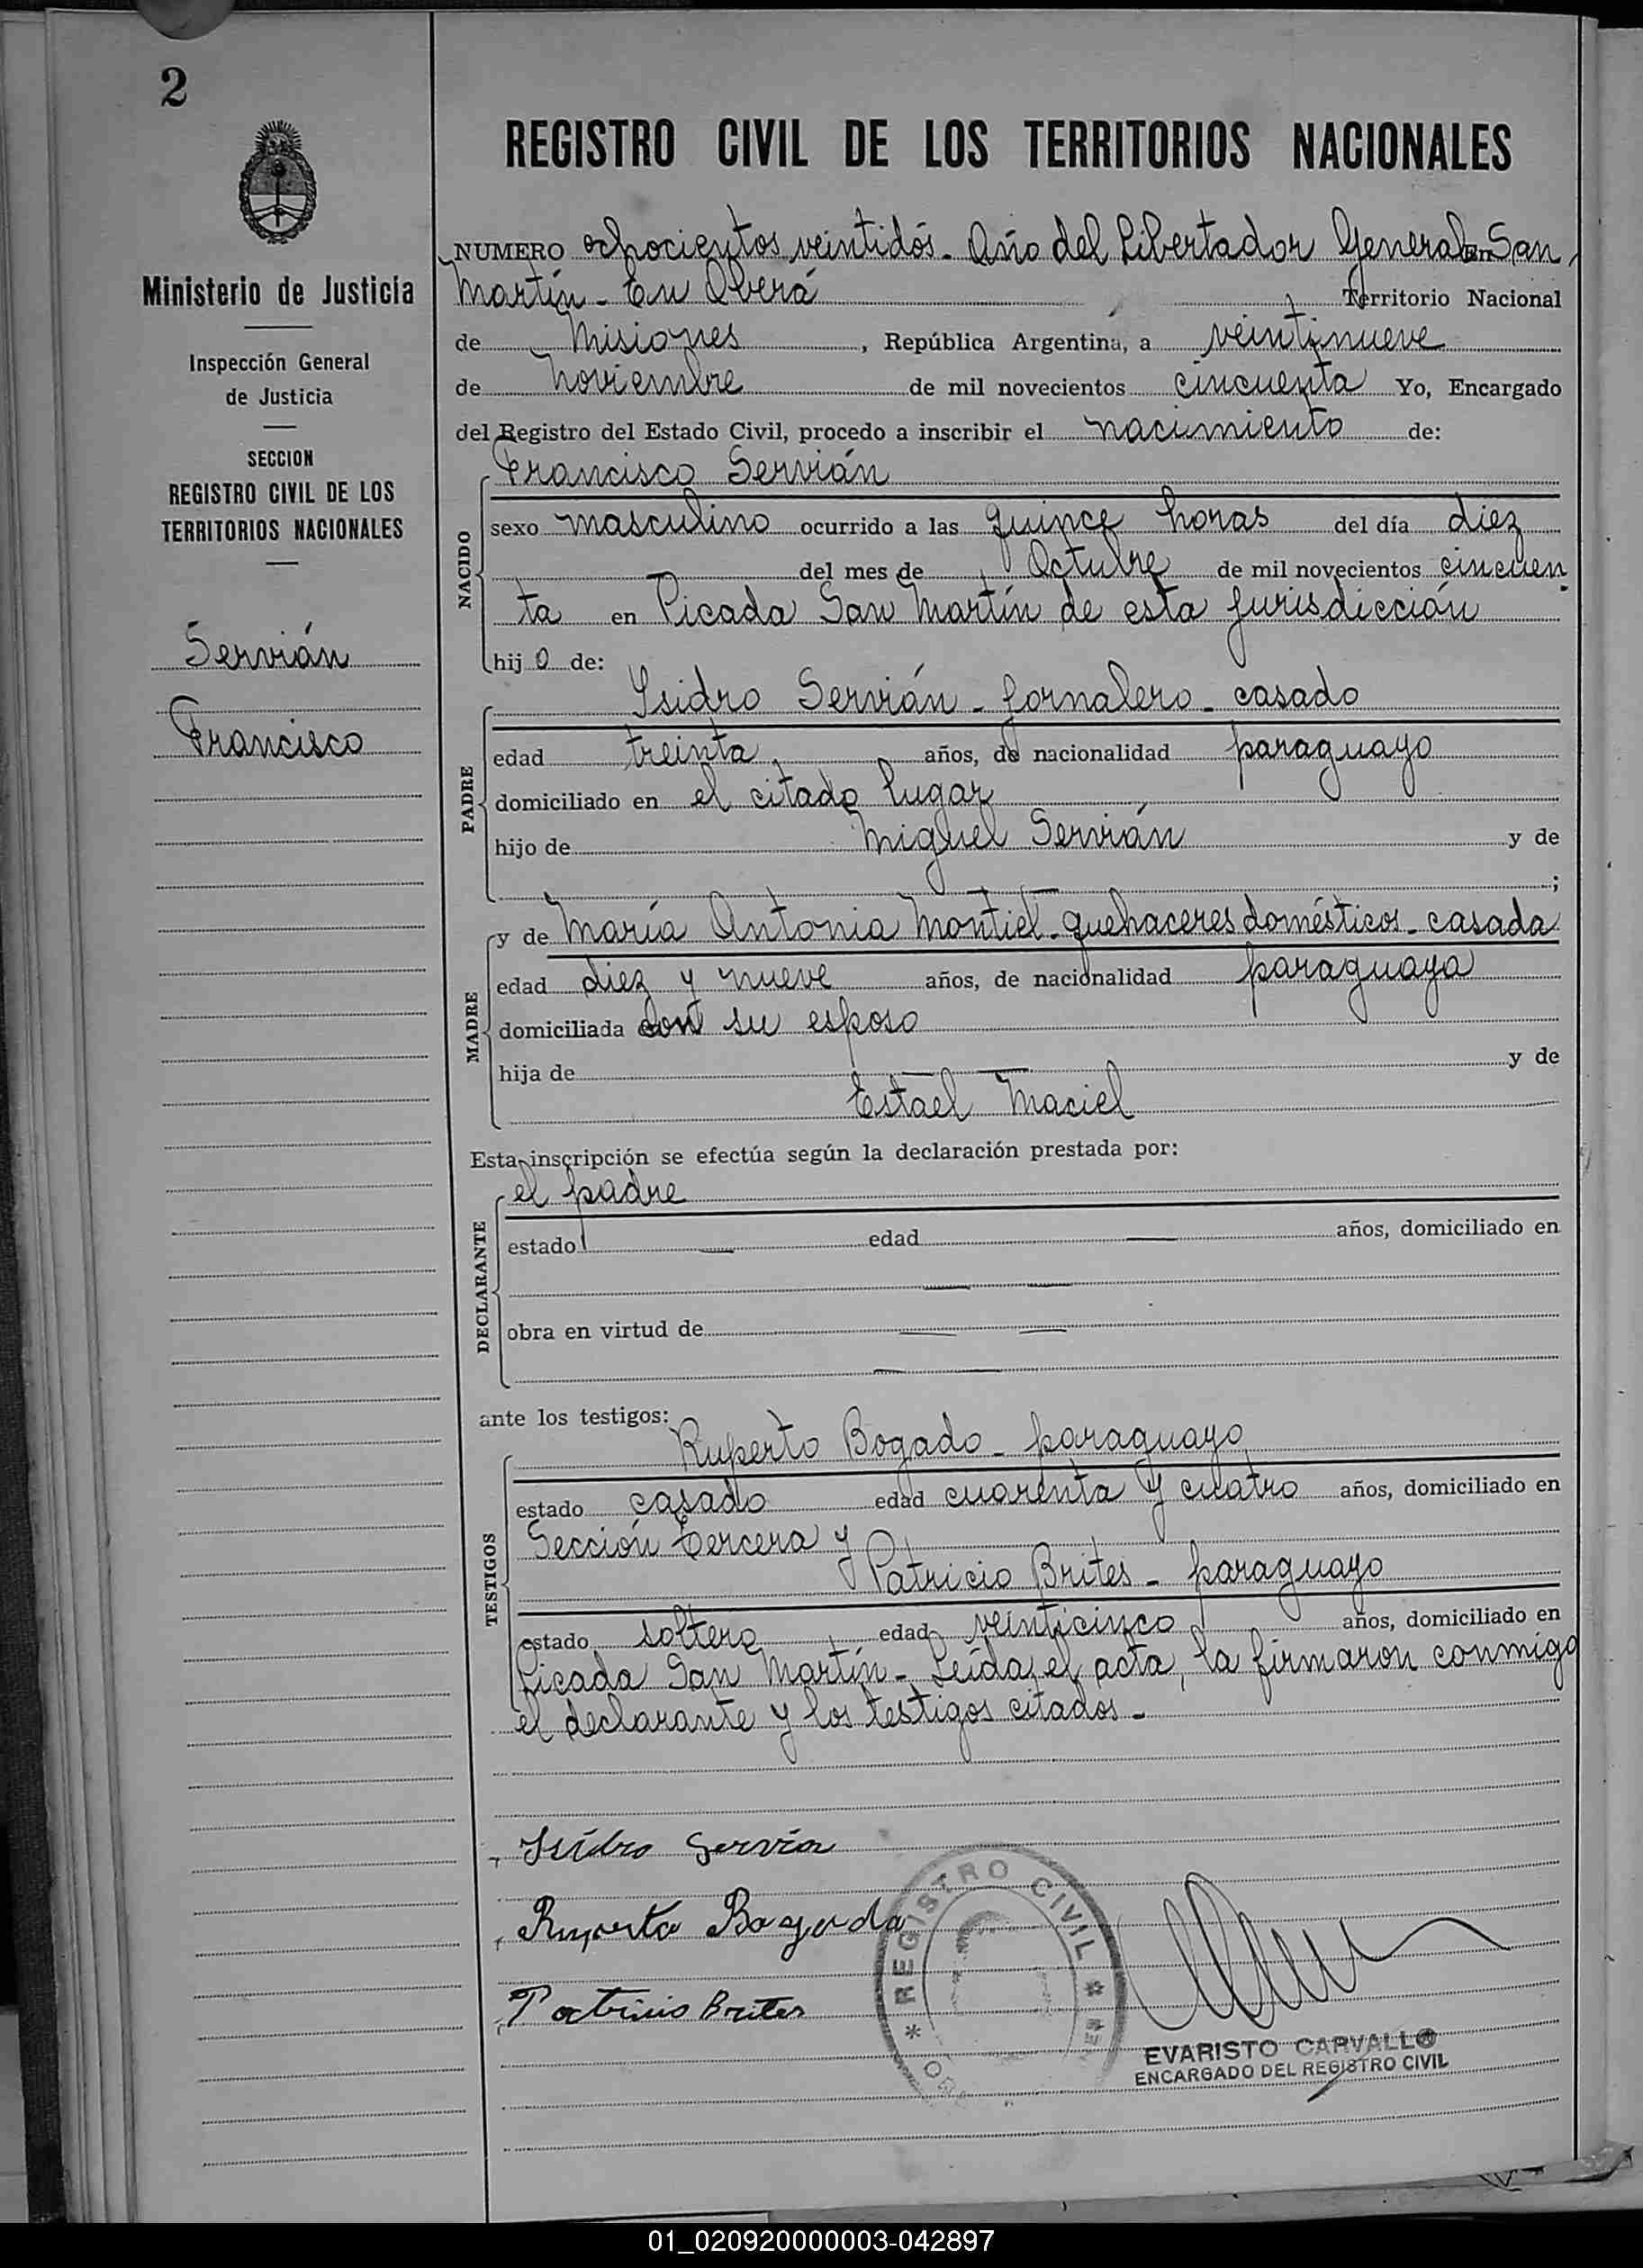 2
Ministerio de Justicia
Inspección General
de Justicia
SECCION
REGISTRO CIVIL DE LOS
TERRITORIOS NACIONALES
Servián
Francisco
REGISTRO CIVIL DE LOS TERRITORIOS NACIONALES
NUMERO ochocientos veintidós - Año del Libertador General en San
Martín - En Oberá Territorio Nacional
de Misiones, República Argentina, a veintinueve
de Noviembre de mil novecientos cincuenta Yo, Encargado
del Registro del Estado Civil, procedo a inscribir el nacimiento de:
NACIDO
Francisco Servián
sexo masculino ocurrido a las quince horas del día diez
del mes de Octubre de mil novecientos cincuen
ta en Picada San Martín de esta jurisdicción
hijo de:
PADRE
Isidro Servián - jornalero - casado
edad treinta años, de nacionalidad paraguayo
domiciliado en el citado lugar
hijo de Miguel Servián y de
;
MADRE
y de María Antonia Montiel - quehaceres domésticos - casada
edad diez y nueve años, de nacionalidad paraguaya
domiciliada con su esposo
hija de y de
Estael Maciel
Esta inscripción se efectúa según la declaración prestada por:
DECLARANTE
el padre
estado — edad — años, domiciliado en
— —
obra en virtud de — —
—
ante los testigos:
TESTIGOS
Ruperto Bogado - paraguayo
estado casado edad cuarenta y cuatro años, domiciliado en
Sección tercera y
Patricio Brites - paraguayo
estado soltero edad veinticinco años, domiciliado en
Picada San Martín - Leída el acta, la firmaron conmigo
el declarante y los testigos citados -
Isidro Servian
Ruperto Bogado
Patricio Brites
* REGISTRO CIVIL *
EVARISTO CARVALLO
ENCARGADO DEL REGISTRO CIVIL
01_020920000003-042897